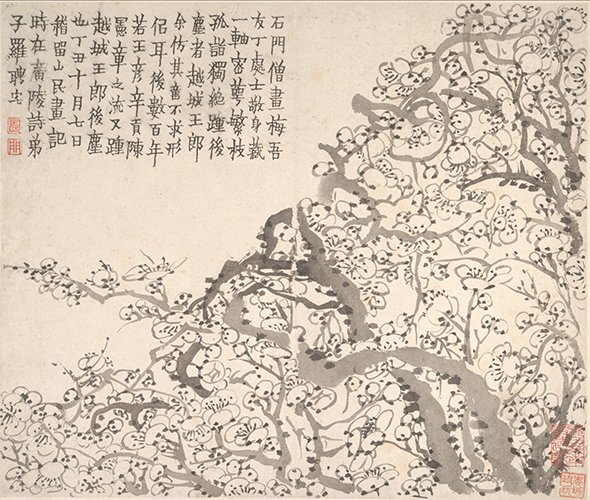 石門僧畫梅吾
友丁處士敬身藏
一軸密萼繁枝
孤詣獨絕踵後
塵者越城王郎
余仿其舊不求形
侣耳後數百年
若王彥辛貢陳
憲章之流又踵
越城王郎後塵
也丁丑十月七日
稽留山民畫記
時在廣陵詩弟
子羅聘